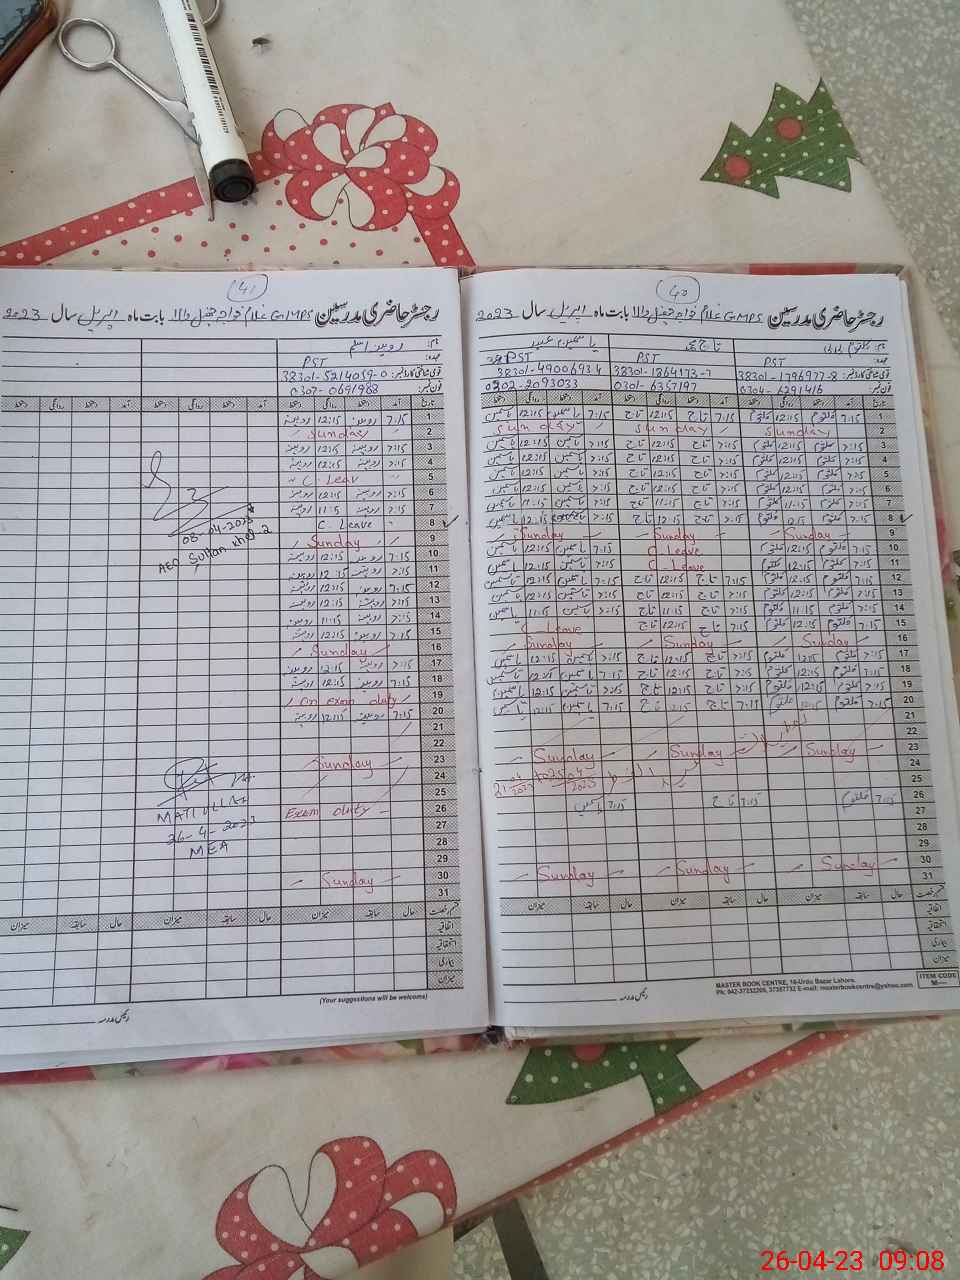 40
رجسٹر حاضری مدرسین GMPS غلام خواجہ جھنڈ والا بابت ماہ اپریل سال 2023
نام: کلثوم
تاج محمد
یاسمین عبید
عہدہ: PST
PST
PST
قومی شناختی کارڈ نمبر: 38301-1796977-8
38301-1864173-7
38301-4900693-4
فون نمبر: 0304-6291416
0301-6357197
0302-2093033
تاریخ آمد دستخط روانگی دستخط آمد دستخط روانگی دستخط آمد دستخط روانگی دستخط
1 7:15 کلثوم 12:15 کلثوم 7:15 تاج 12:15 تاج 7:15 یاسمین 12:15 یاسمین
2 Sunday Sunday Sunday
3 7:15 کلثوم 12:15 کلثوم 7:15 تاج 12:15 تاج 7:15 یاسمین 12:15 یاسمین
4 7:15 کلثوم 12:15 کلثوم 7:15 تاج 12:15 تاج 7:15 یاسمین 12:15 یاسمین
5 7:15 کلثوم 12:15 کلثوم 7:15 تاج 12:15 تاج 7:15 یاسمین 12:15 یاسمین
6 7:15 کلثوم 12:15 کلثوم 7:15 تاج 12:15 تاج 7:15 یاسمین 12:15 یاسمین
7 7:15 کلثوم 11:15 کلثوم 7:15 تاج 11:15 تاج 7:15 یاسمین 11:15 یاسمین
8 7:15 کلثوم 12:15 کلثوم 7:15 تاج 12:15 تاج 7:15 یاسمین 12:15 یاسمین
9 Sunday Sunday Sunday
10 7:15 کلثوم 12:15 کلثوم C.Leave 7:15 یاسمین 12:15 یاسمین
11 7:15 کلثوم 12:15 کلثوم C.Leave 7:15 یاسمین 12:15 یاسمین
12 7:15 کلثوم 12:15 کلثوم 7:15 تاج 12:15 تاج 7:15 یاسمین 12:15 یاسمین
13 7:15 کلثوم 12:15 کلثوم 7:15 تاج 12:15 تاج 7:15 یاسمین 12:15 یاسمین
14 7:15 کلثوم 11:15 کلثوم 7:15 تاج 11:15 تاج 7:15 یاسمین 11:15 یاسمین
15 7:15 کلثوم 12:15 کلثوم 7:15 تاج 12:15 تاج C Leave
16 Sunday Sunday Sunday
17 7:15 کلثوم 12:15 کلثوم 7:15 تاج 12:15 تاج 7:15 یاسمین 12:15 یاسمین
18 7:15 کلثوم 12:15 کلثوم 7:15 تاج 12:15 تاج 7:15 یاسمین 12:15 یاسمین
19 7:15 کلثوم 12:15 کلثوم 7:15 تاج 12:15 تاج 7:15 یاسمین 12:15 یاسمین
20 7:15 کلثوم 12:15 کلثوم 7:15 تاج 12:15 تاج 7:15 یاسمین 12:15 یاسمین
21
22
23 Sunday Sunday Sunday
24
25
26 7:15 کلثوم 7:15 تاج 7:15 یاسمین
27
28
29
30 Sunday Sunday Sunday
31
قسم رخصت حال سابقہ میزان حال سابقہ میزان حال سابقہ میزان
اتفاقیہ
استحقاقیہ
بیماری
میزان
MASTER BOOK CENTRE, 16-Urdu Bazar Lahore.
ITEM CODE
رئیس مدرسہ
41
رجسٹر حاضری مدرسین GMPS غلام خواجہ جھنڈ والا بابت ماہ اپریل سال 2023
نام: روبینہ اسلم
عہدہ: PST
قومی شناختی کارڈ نمبر: 38301-5214059-0
فون نمبر: 0307-0691988
تاریخ آمد دستخط روانگی دستخط آمد دستخط روانگی دستخط آمد دستخط روانگی دستخط
1 7:15 روبینہ 12:15 روبینہ
2 Sunday
3 7:15 روبینہ 12:15 روبینہ
4 7:15 روبینہ 12:15 روبینہ
5 C.Leav
6 7:15 روبینہ 12:15 روبینہ
7 7:15 روبینہ 11:15 روبینہ
8 C.Leave
9 Sunday
10 7:15 روبینہ 12:15 روبینہ
11 7:15 روبینہ 12:15 روبینہ
12 7:15 روبینہ 12:15 روبینہ
13 7:15 روبینہ 12:15 روبینہ
14 7:15 روبینہ 11:15 روبینہ
15 7:15 روبینہ 12:15 روبینہ
16 Sunday
17 7:15 روبینہ 12:15 روبینہ
18 7:15 روبینہ 12:15 روبینہ
19 On Exam duty
20 7:15 روبینہ 12:15 روبینہ
21
22
23 Sunday
24
25
26 Exam duty
27
28
29
30 Sunday
31
08-04-2023
AEO Sultan khel-2
MATIULLAH
26-4-2023
MEA
قسم رخصت حال سابقہ میزان حال سابقہ میزان حال سابقہ میزان
اتفاقیہ
استحقاقیہ
بیماری
میزان
(Your suggestions will be welcome)
رئیس مدرسہ
26-04-23 09:08